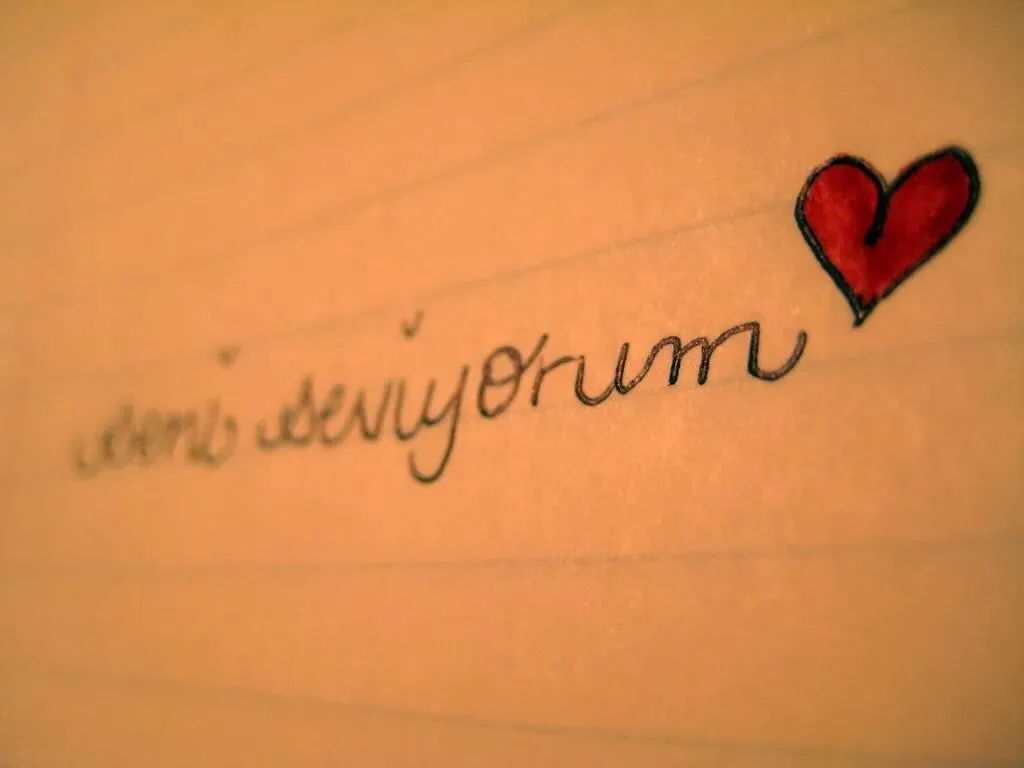 seni seviyorum